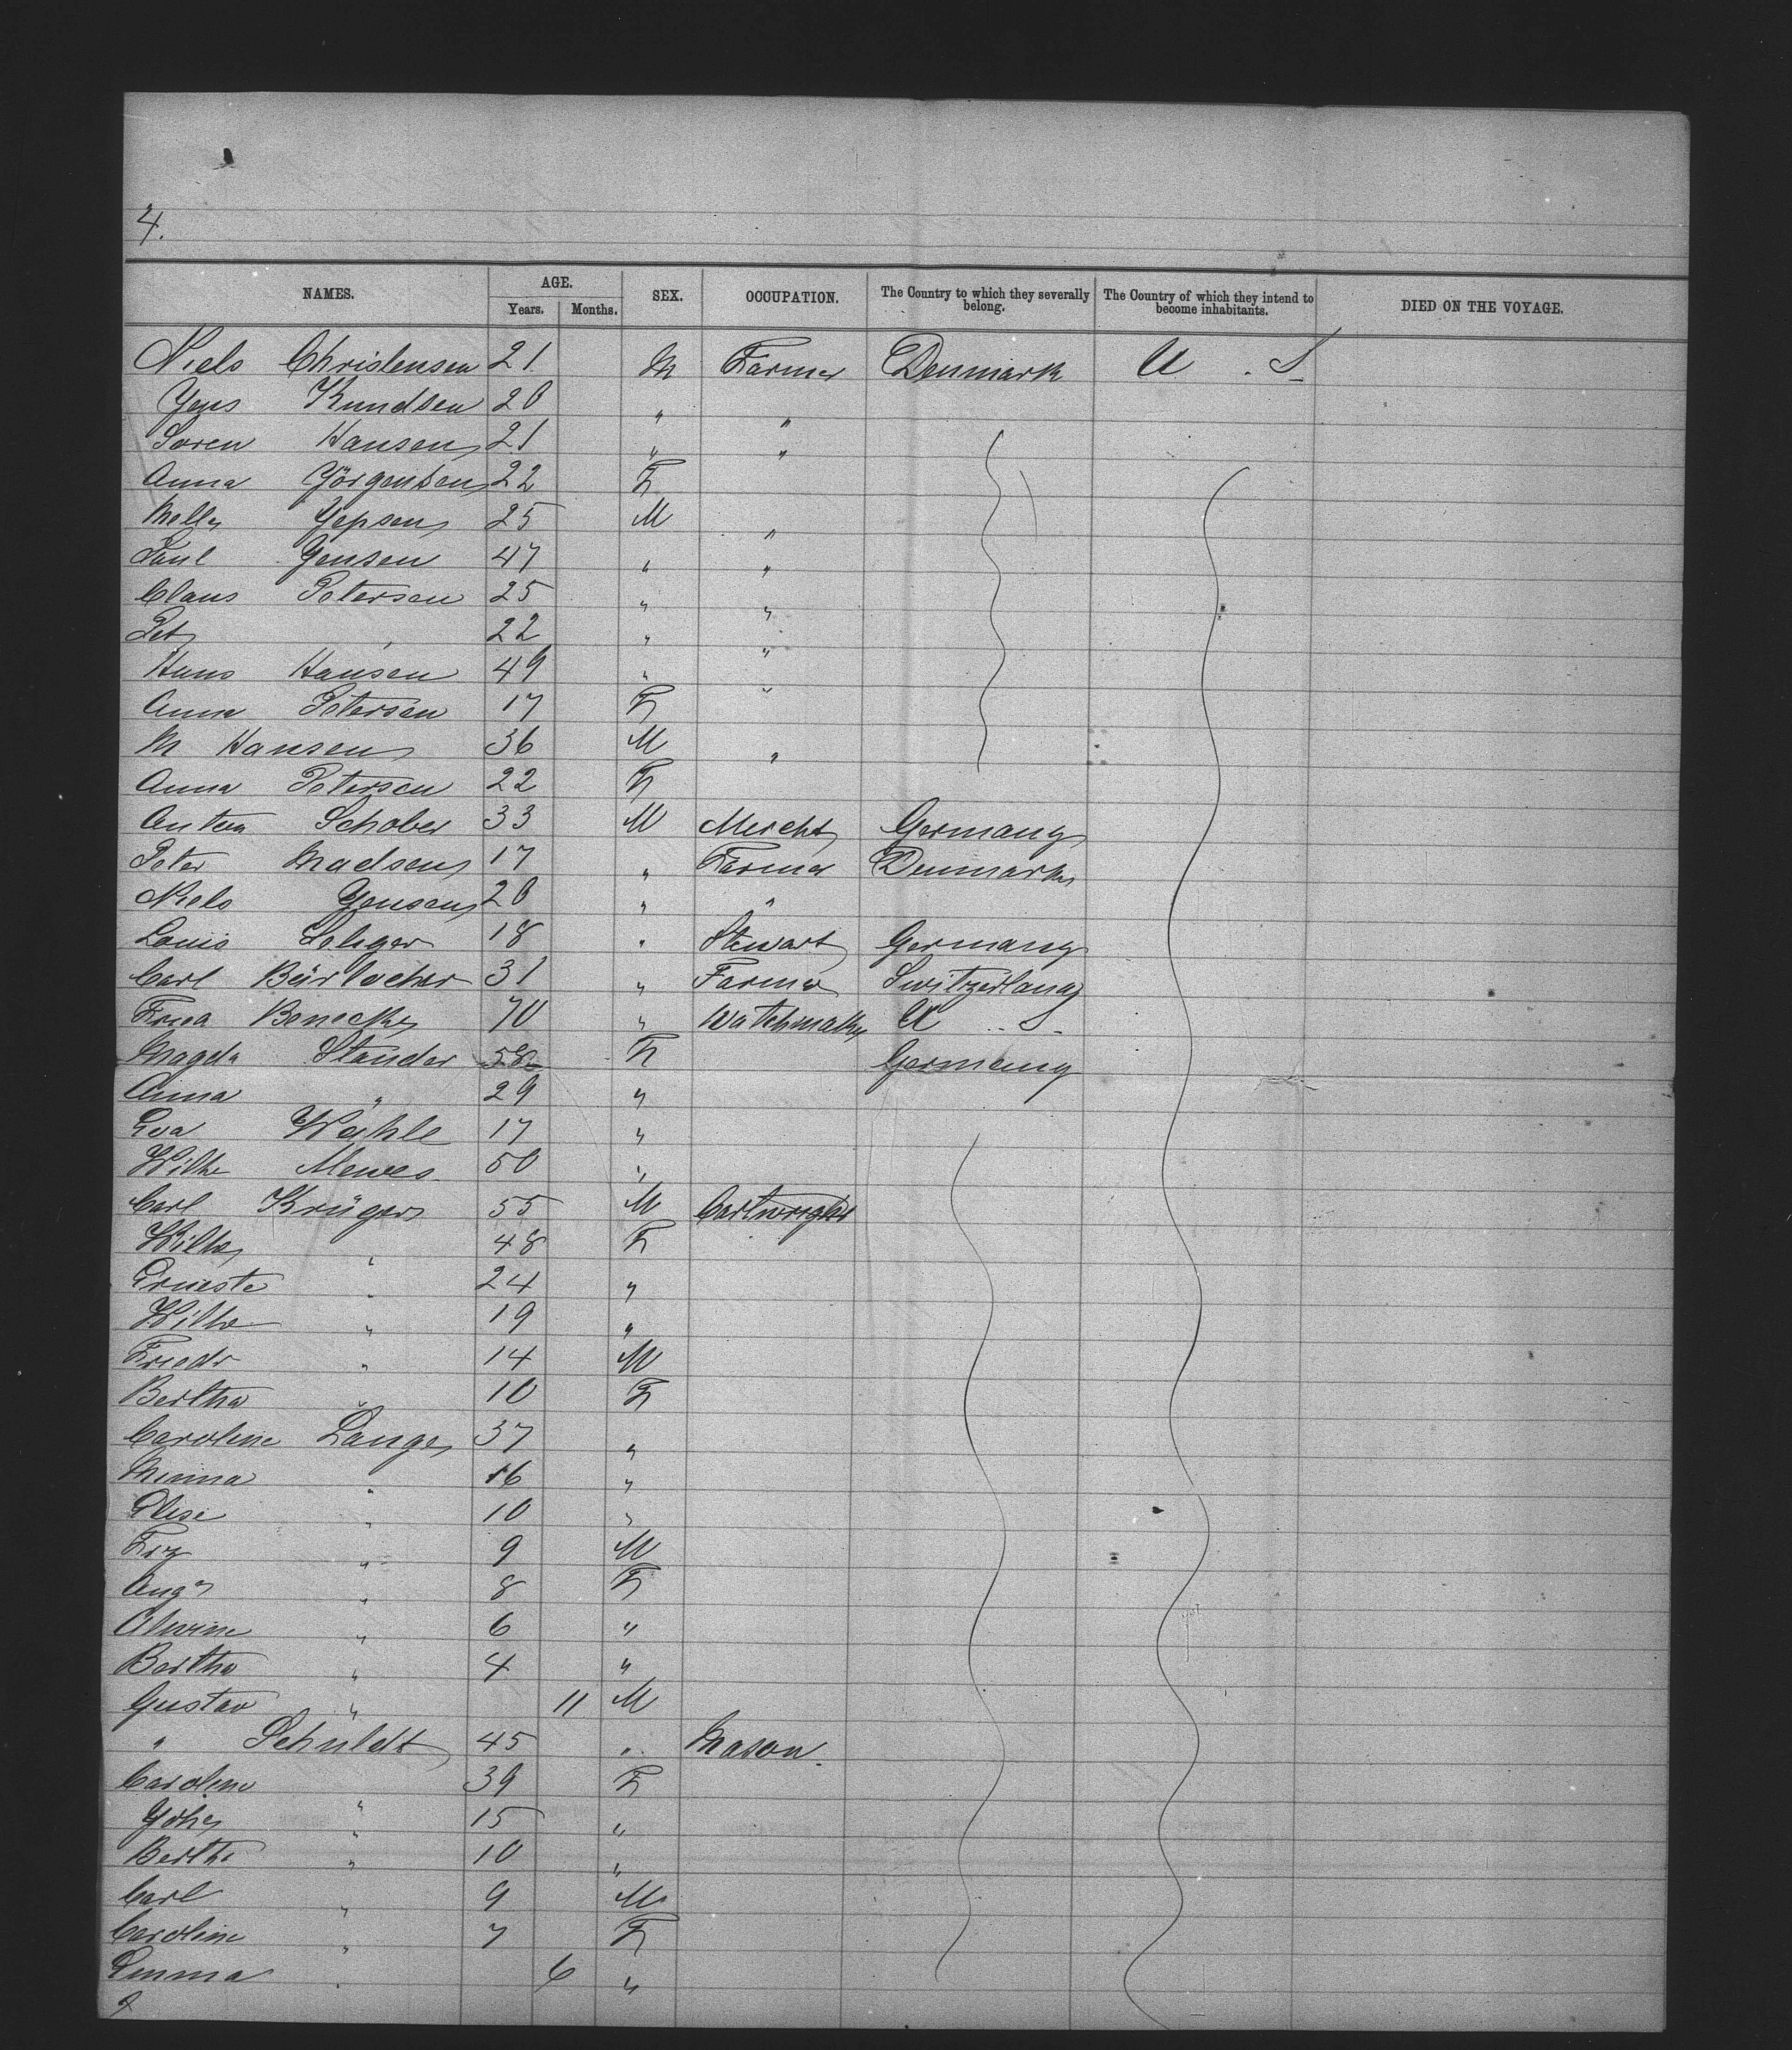 4.
NAMES. AGE. SEX. OCCUPATION. The Country to which they severally belong. The Country of which they intend to become inhabitants. DIED ON THE VOYAGE.
Years. Months.
Niels Christensen 21 M Farmer Denmark U. S.
Yens Knudsen 20 " "
Soren Hansen 21 " "
Anna Görgensen 22 F
Yepsen 25 M "
Paul Yensen 47 " "
Claus Petersen 25 " "
Pet " 22 " "
Hans Hansen 49 " "
Anna Petersen 17 F
M Hansen 36 M "
Anna Petersen 22 F
Anton Schober 33 M Mercht Germany
Peter Madsen 17 " Farmer Denmark
Niels Yensen 20 " "
Louis 18 " Stewart Germany
Carl Bärlocher 31 " Farmer Switzerland
Benecke 70 " Watchmaker U. S.
Magda Stander 58 F Germany
Anna " 29 "
Eva Wahle 17 "
Wilhe Mewes 50 "
Carl Krüger 55 M Cartwright
Wilhe " 48 F
Erneste " 24 "
Wilhe " 19 "
Friedr " 14 M
Bertha " 10 F
Caroline Lange 37 "
Minna " 16 "
Elise " 10 "
" 9 M
Aug" " 8 F
Alwine " 6 "
Bertha " 4 "
Gustav " 11 M
" Schuldt 45 " Mason
Caroline " 39 F
Yohe " 15 "
Berthe " 10 "
Carl " 9 M
Caroline " 7 F
Emma " 6 "